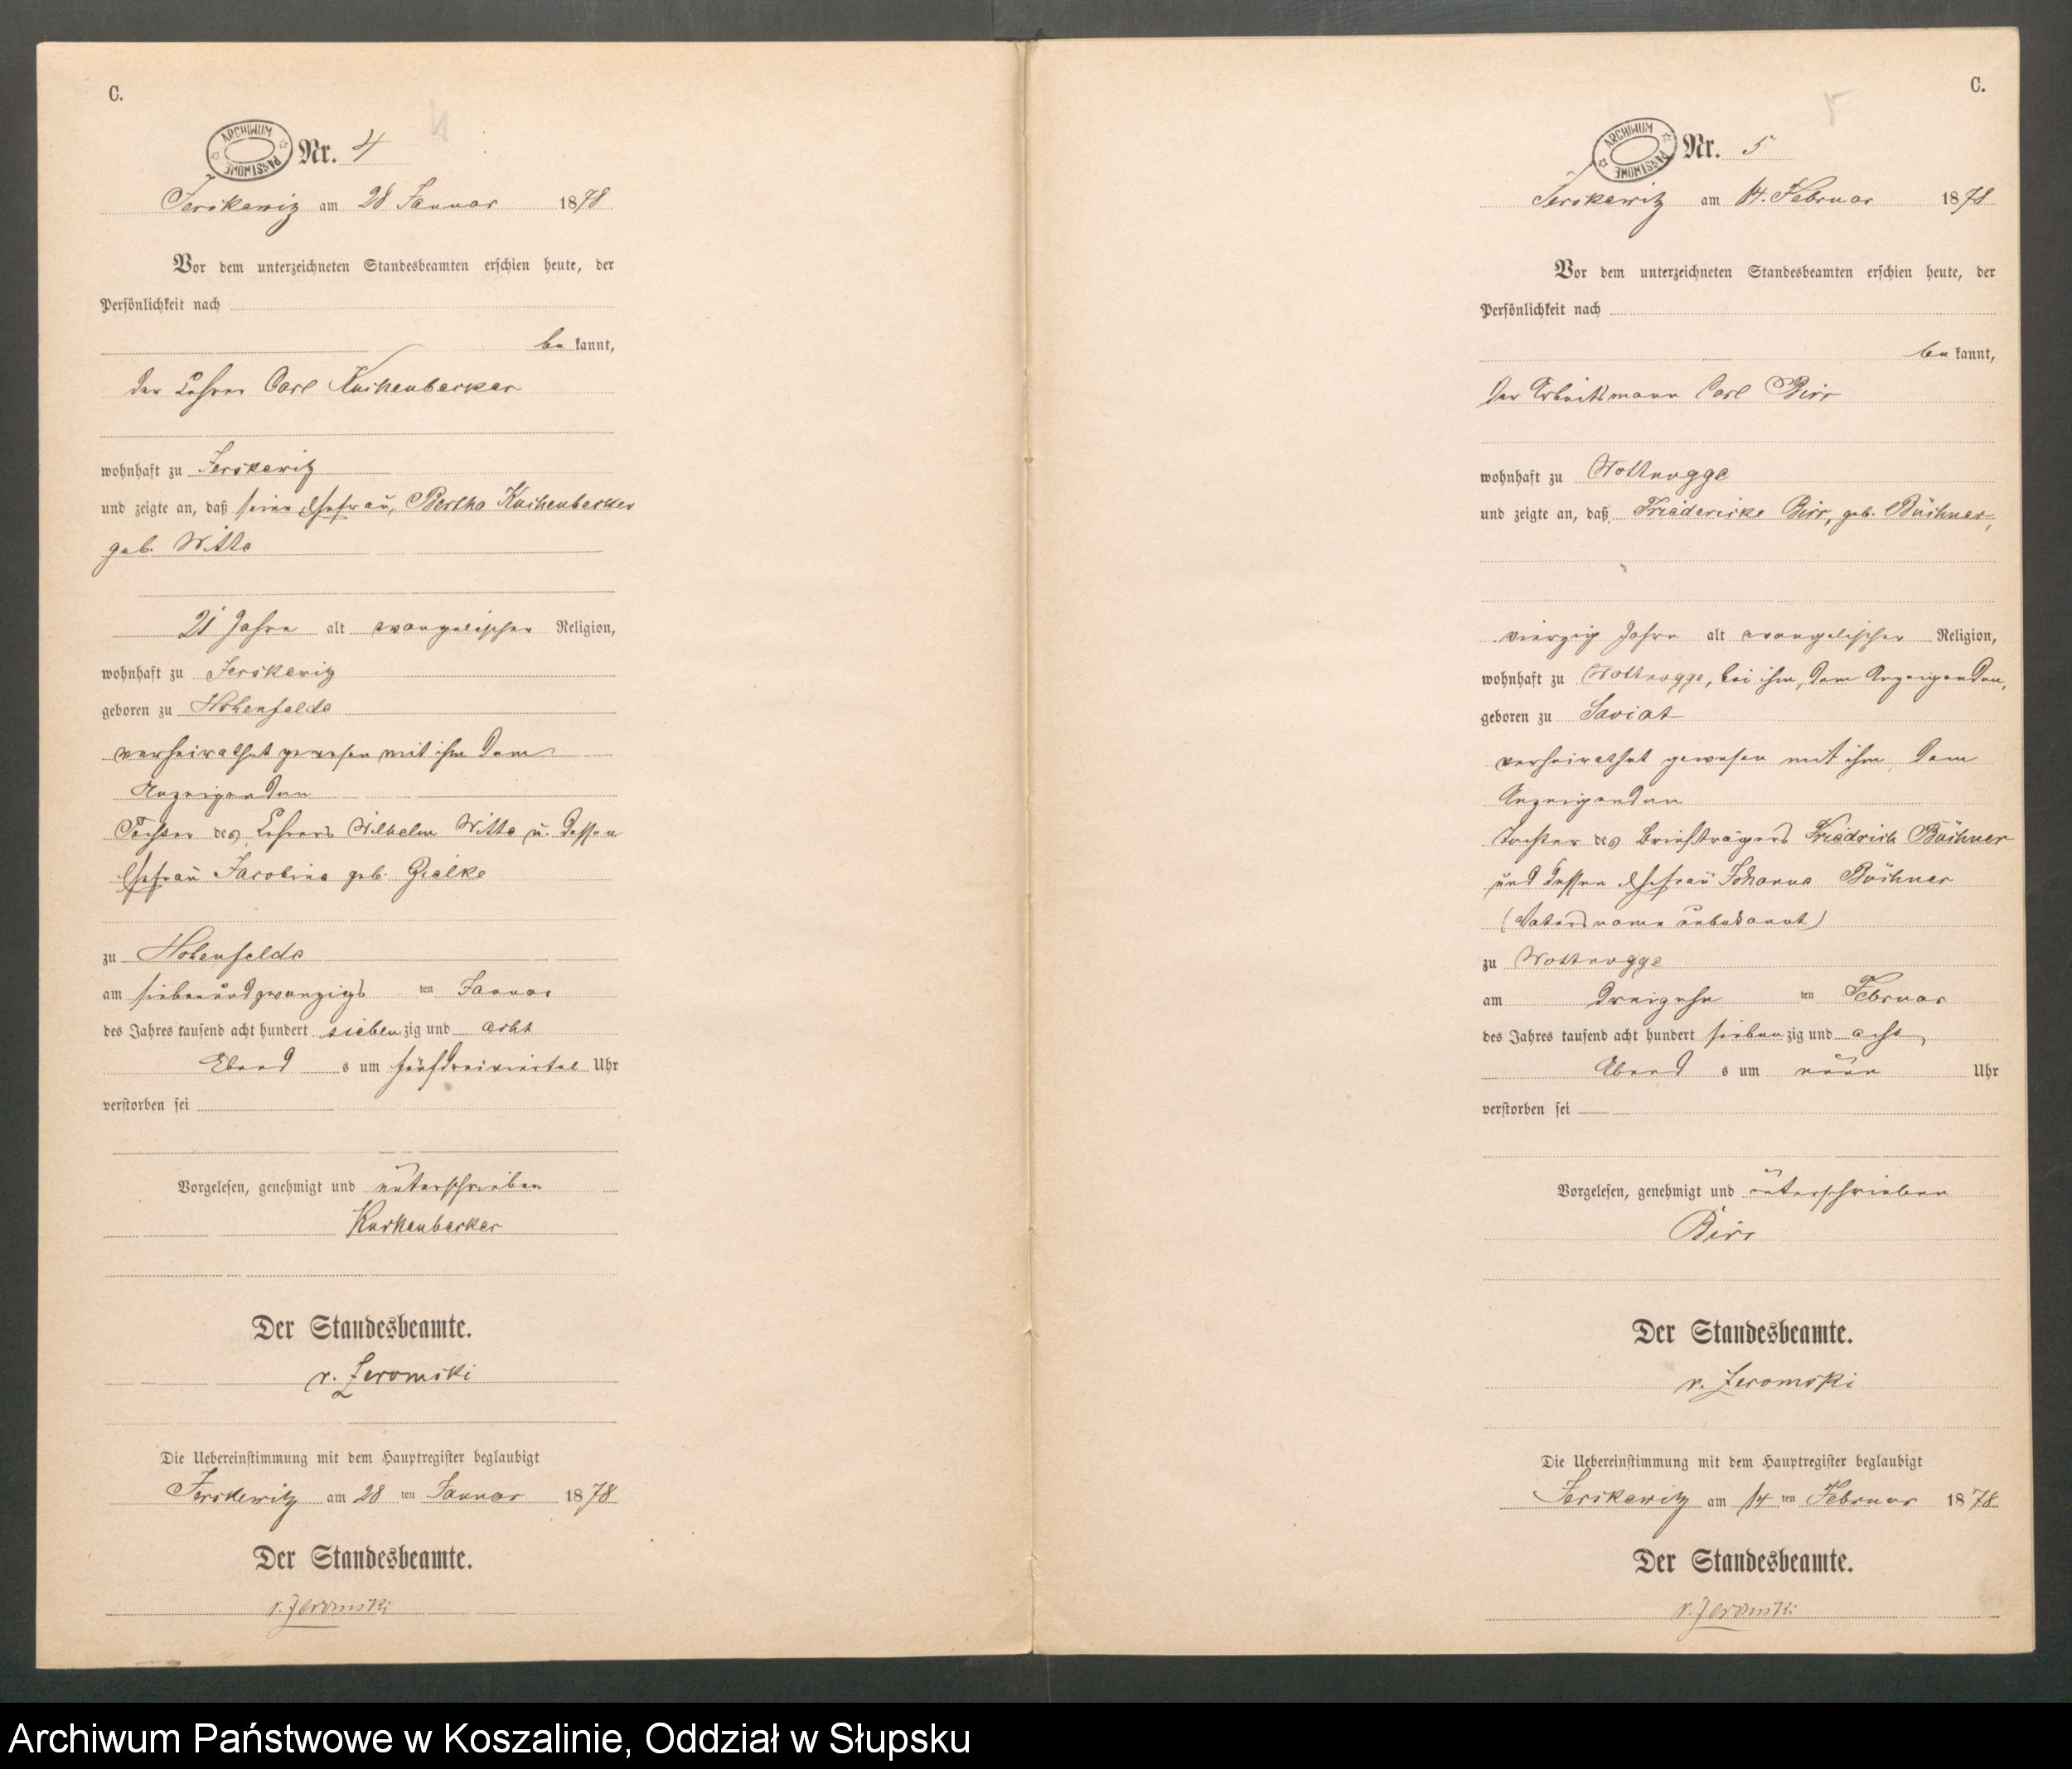 C.
ARCHIWUM PAŃSTWOWE
Nr. 4
Jerskewitz am 28 Januar 1878
Vor dem unterzeichneten Standesbeamten erschien heute, der
Persönlichkeit nach
be kannt,
der Lehrer Carl Kuchenbecker
wohnhaft zu Jerskewitz
und zeigte an, daß seine Ehefrau, Bertha Kuchenbecker
geb. Witte
21 Jahre alt evangelischer Religion,
wohnhaft zu Jerskewitz
geboren zu Hohenfelde
verheirathet gewesen mit ihm dem
Anzeigenden
Tochter des Lehrers Wilhelm Witte u. dessen
Ehefrau Jacobine geb. Zielke
zu Hohenfelde
am siebenundzwanzigs ten Januar
des Jahres tausend acht hundert siebenzig und acht
Abend s um fünfdreiviertel Uhr
verstorben sei
Vorgelesen, genehmigt und unterschrieben
Kuchenbecker
Der Standesbeamte.
v. Zeromski
Die Uebereinstimmung mit dem Hauptregister beglaubigt
Jerskewitz am 28 ten Januar 1878
Der Standesbeamte.
v. Zeromski
C.
ARCHIWUM PAŃSTWOWE
Nr. 5
Jerskewitz am 14. Februar 1878
Vor dem unterzeichneten Standesbeamten erschien heute, der
Persönlichkeit nach
be kannt,
der Arbeitsmann Carl Birr
wohnhaft zu Wottnogge
und zeigte an, daß Friedericke Birr, geb. Büchner,
vierzig Jahre alt evangelischer Religion,
wohnhaft zu Wottnogge, bei ihm, dem Anzeigenden,
geboren zu Saviat
verheirathet gewesen mit ihm dem
Anzeigenden
Tochter des Briefträgers Friedrich Büchner
und dessen Ehefrau Johanna Büchner
(Vatersname unbekannt)
zu Wottnogge
am dreizehn ten Februar
des Jahres tausend acht hundert siebenzig und acht
Abend s um neun Uhr
verstorben sei
Vorgelesen, genehmigt und unterschrieben
Birr
Der Standesbeamte.
v. Zeromski
Die Uebereinstimmung mit dem Hauptregister beglaubigt
Jerskewitz am 14 ten Februar 1878
Der Standesbeamte.
v. Zeromski
Archiwum Państwowe w Koszalinie, Oddział w Słupsku